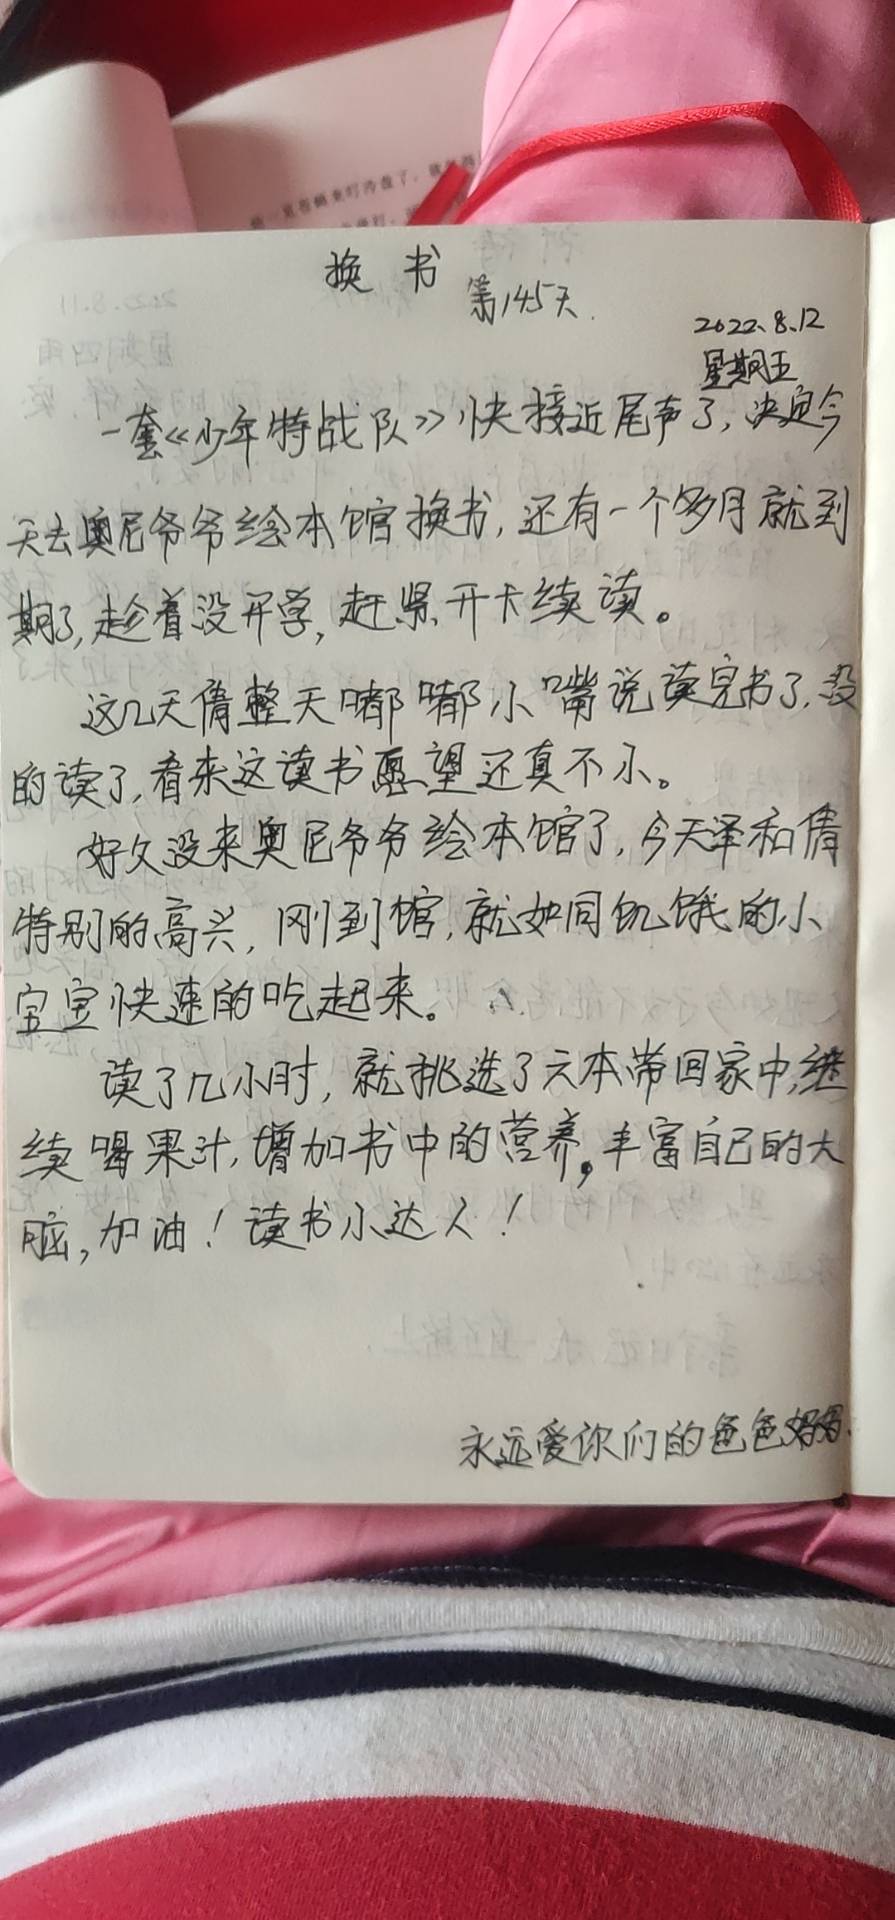 换书
第145天.
2022.8.12
星期五
一套《少年特战队》快接近尾声了,决定今
天去奥尼爷爷绘本馆换书,还有一个多月就到
期了,趁着没开学,赶紧开卡续读。
这几天倩整天嘟嘟小嘴说读完书了,没
的读了,看来这读书愿望还真不小。
好久没来奥尼爷爷绘本馆了,今天泽和倩
特别的高兴,刚到馆,就如同饥饿的小
宝宝快速的吃起来。
读了几小时,就挑选了六本带回家中,继
续喝果汁,增加书中的营养。丰富自己的大
脑,加油!读书小达人!
永远爱你们的爸爸妈妈.